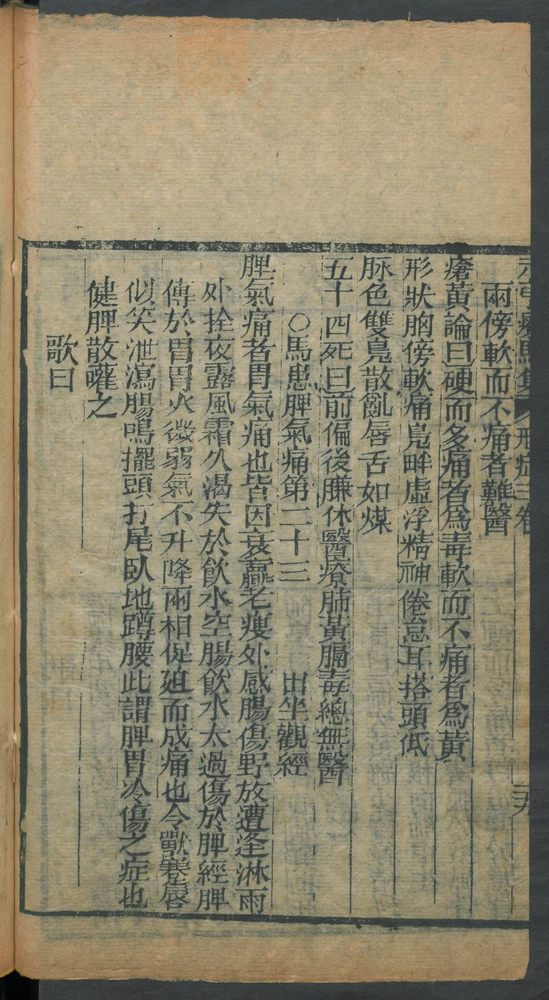 元亨療馬集 形症三卷
兩傍軟而不痛者難醫
瘡黃論曰硬而多痛者為毒軟而不痛者為黃
形狀胸傍軟痛鳧畔虛浮精神倦怠耳搭頭低
脉色雙鳧散亂唇舌如煤
五十四死曰前偏後臁休醫療肺黃膈毒總無醫
○馬患脾氣痛第二十三 出坐觀經
脾氣痛者胃氣痛也皆因衰羸老瘦外感腸傷野放遭逢淋雨
外拴夜露風霜久渴失於飲水空腸飲水太過傷於脾經脾
傳於胃胃火微弱氣不升降兩相促迫而成痛也令獸蹇唇
似笑泄瀉腸鳴擺頭打尾臥地蹲腰此謂脾胃冷傷之症也
健脾散嚾之
歌曰